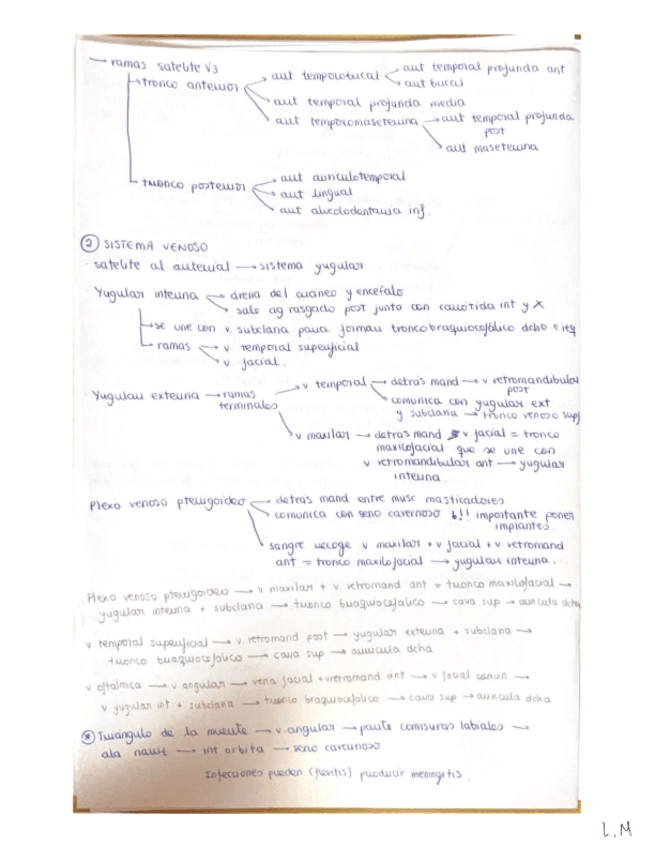 → ramas satelite V3
→ tronco anterior → art temporobucal → art temporal profunda ant
→ art bucal
→ art temporal profunda media
→ art temporomaseterina → art temporal profunda
post
→ art maseterina
→ tronco posterior → art auriculotemporal
→ art lingual
→ art alveolodentaria inf.
② SISTEMA VENOSO
· satelite al arterial → sistema yugular
· Yugular interna → drena del craneo y encefalo
→ sale ag rasgado post junto con carótida int y X
→ se une con v. subclavia para formar tronco braquiocefálico dcho e izq
→ ramas → v temporal superficial
→ v facial.
· Yugular externa → ramas
terminales
→ v temporal → detrás mand → v retromandibular
post
→ comunica con yugular ext
y subclavia → tronco venoso sup
→ v maxilar → detrás mand v facial = tronco
maxilofacial que se une con
v retromandibular ant → yugular
interna.
Plexo venoso pterigoideo → detrás mand entre musc masticadores
→ comunica con seno cavernoso !!! importante poner
implantes
→ sangre recoge v maxilar + v facial + v retromand
ant = tronco maxilofacial → yugular interna.
· Plexo venoso pterigoideo → v maxilar + v. retromand ant = tronco maxilofacial →
yugular interna + subclavia → tronco braquiocefalico → cava sup → auricula dcha
v temporal superficial → v retromand post → yugular externa + subclavia →
tronco braquiocefalico → cava sup → auricula dcha
v oftalmica → v angular → vena facial + v retromand ant → v facial comun →
v yugular int + subclavia → tronco braquiocefalico → cava sup → auricula dcha
⊛ Triángulo de la muerte → v. angular → parte comisuras labiales →
ala nariz → int orbita → seno cavernoso
Infecciones pueden (flebitis) producir meningitis.
L.M